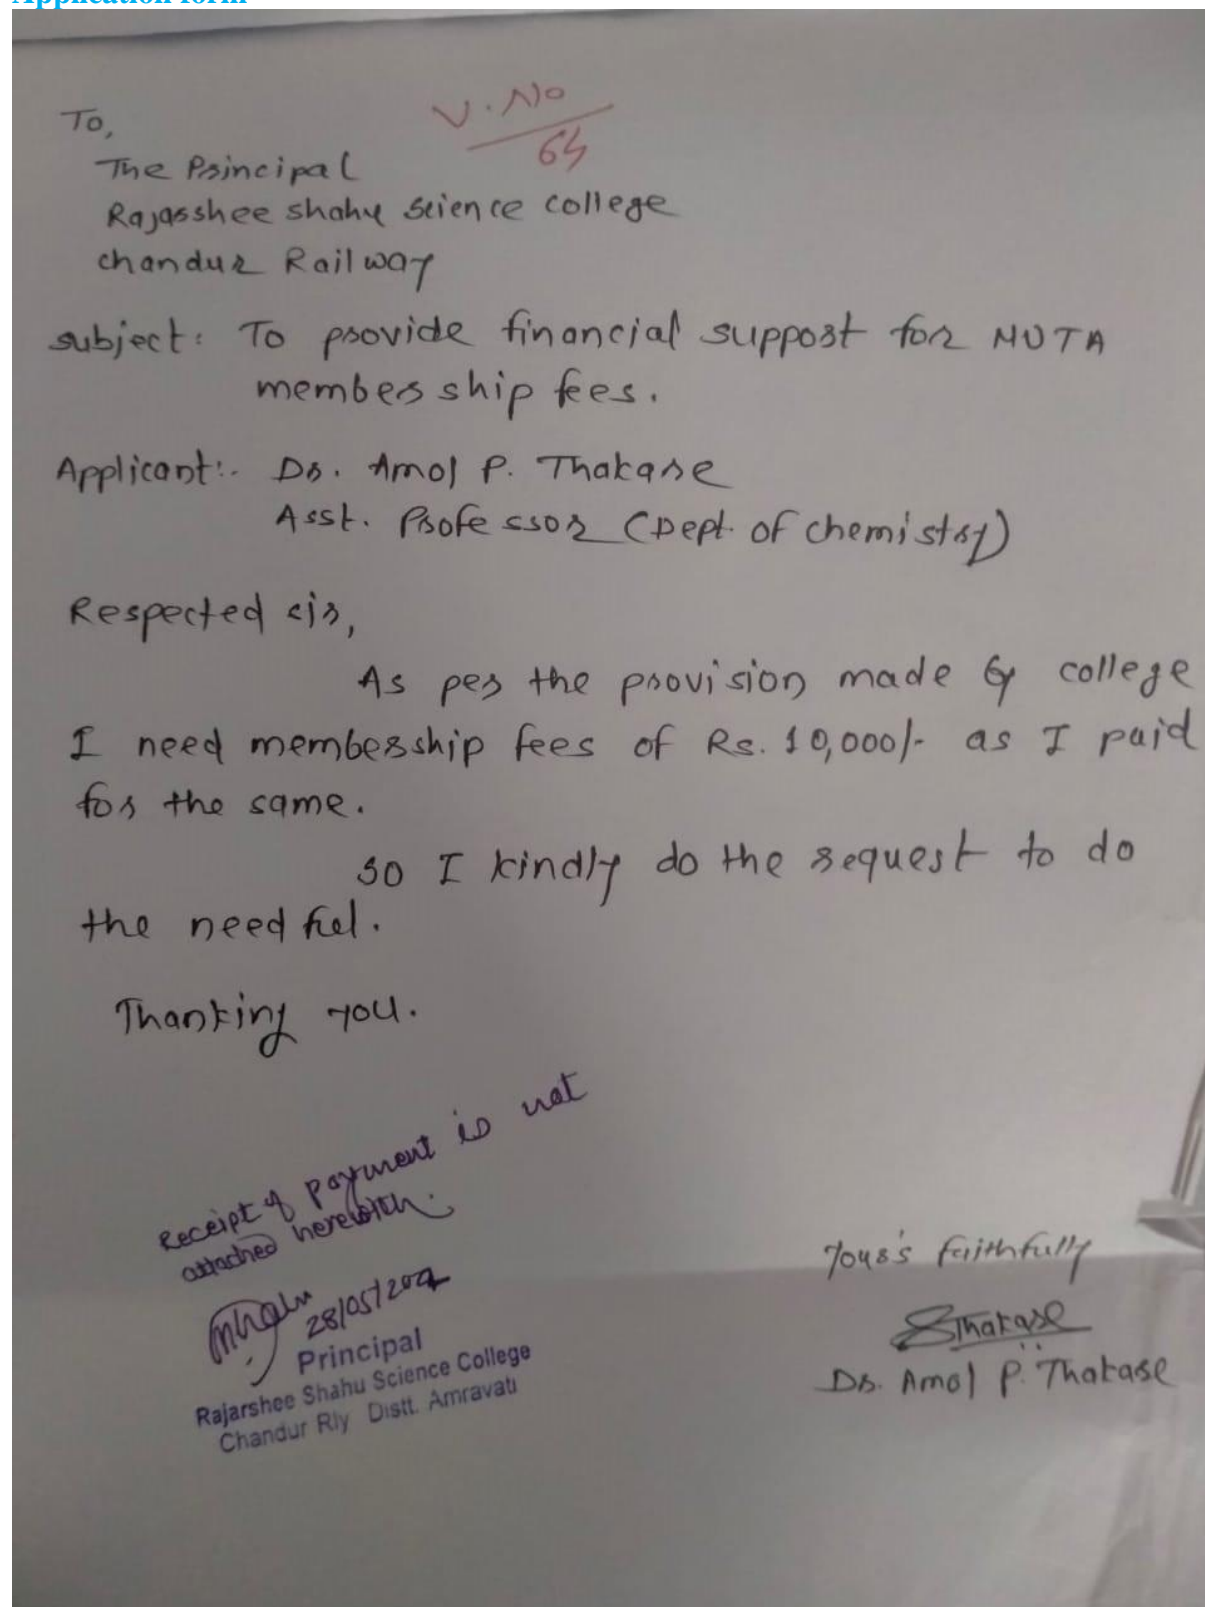 Application form
V. No
64
To,
The Principal
Rajarshee shahu science college
chandur Railway
subject: To provide financial support for NUTA
membership fees.
Applicant:- Dr. Amol P. Thakare
Asst. Professor (Dept. of chemistry)
Respected sir,
As per the provision made by college
I need membership fees of Rs. 10,000/- as I paid
for the same.
so I kindly do the request to do
the needful.
Thanking you.
Receipt of payment is not
attached herewith.
28/05/202
Principal
Rajarshee Shahu Science College
Chandur Rly Distt. Amravati
Your's faithfully
Thakare
Dr. Amol P. Thakare